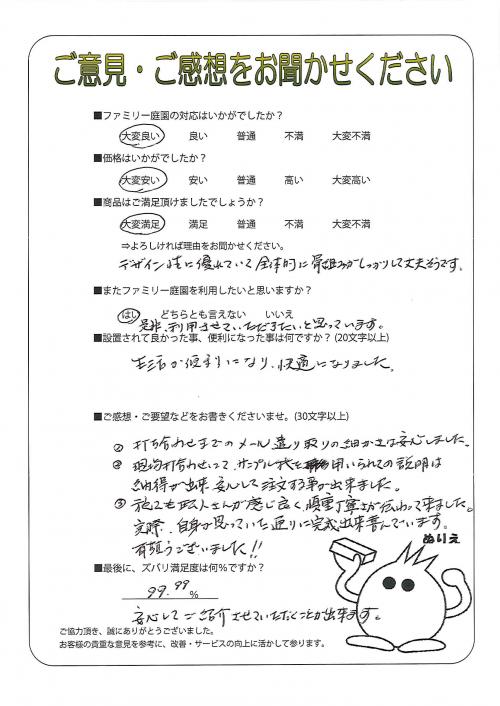 ご意見・ご感想をお聞かせください
■ファミリー庭園の対応はいかがでしたか？
大変良い 良い 普通 不満 大変不満
■価格はいかがでしたか？
大変安い 安い 普通 高い 大変高い
■商品はご満足頂けましたでしょうか？
大変満足 満足 普通 不満 大変不満
⇒よろしければ理由をお聞かせください。
デザイン性に優れていて全体的に骨組みがしっかりして丈夫そうです。
■またファミリー庭園を利用したいと思いますか？
はい どちらとも言えない いいえ
是非、利用させていただきたいと思っています。
■設置されて良かった事、便利になった事は何ですか？(20文字以上)
生活が便利になり、快適になりました。
■ご感想・ご要望などをお書きくださいませ。(30文字以上)
① 打ち合わせまでのメール遣り取りの細かさは安心しました。
② 現場打合わせについて、サンプル 用いられての説明は
納得が出来、安心して注文する事が出来ました。
③ 施工も職人さんが感じ良く、慎重丁寧さが伝わって来ました。
実際、自身が思っていた通りに完成出来喜んでいます。
有難うございました!!
ぬりえ
■最後に、ズバリ満足度は何％ですか？
99.99 %
安心してご紹介させていただくことが出来ます。
ご協力頂き、誠にありがとうございました。
お客様の貴重な意見を参考に、改善・サービスの向上に活かして参ります。